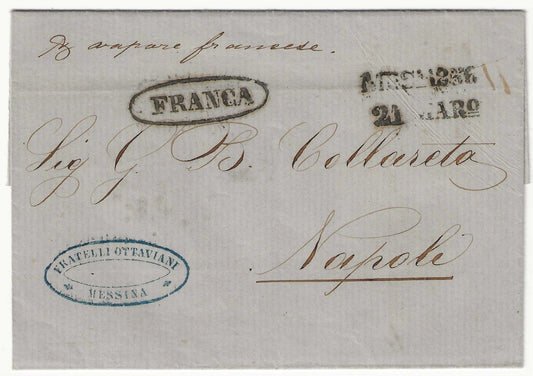 vapore francese.
FRANCA
21 MARO
Sig G. B. Collareta
Napoli
FRATELLI OTTAVIANI
MESSINA